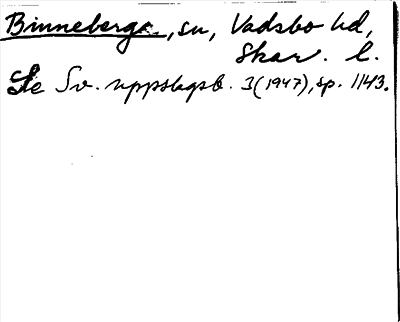 Binneberga, sn, Vadsbo hd,
Skar. l.
Se Sv. uppslagsb. 3(1947), sp. 1143.